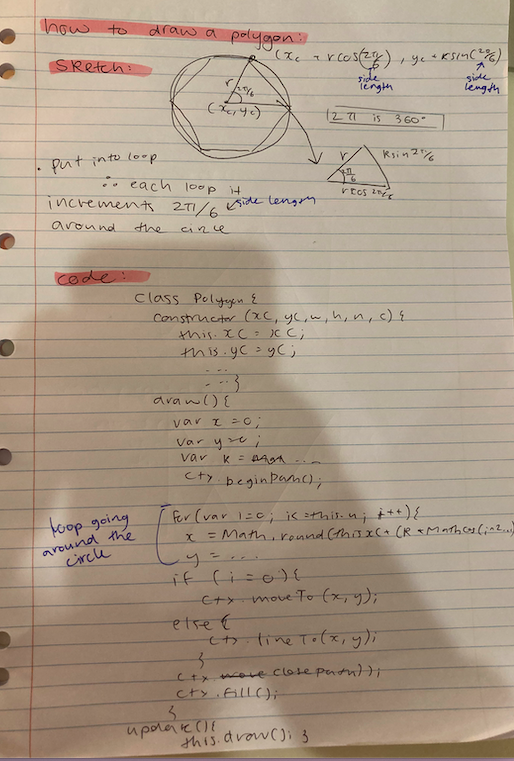 how to draw a polygon:
(xc + rcos(2π/6), yc + rsin(2π/6)
side length
side length
Sketch:
r
2π/6
(xc, yc)
2π is 360°
r
Rsin2π/6
2π/6
rcos 2π/6
• put into loop
∴ each loop it
increments 2π/6 ↙side length
around the circle
code:
Class Polygon {
constructor (xC, yC, w, h, n, c) {
this.xC = xC;
this.yC = yC;
...
...}
draw() {
var x = 0;
var y = 0;
var R = ...
ctx.beginPath();
loop going
around the
circle
for (var i=0; i<=this.n; i++) {
x = Math.round(this.xC + (R * Math.cos(i*2...
y = ...
if (i = 0) {
ctx.moveTo (x, y);
else {
ctx.lineTo(x, y);
}
ctx. move closePath());
ctx.fill();
}
update() {
this.draw(); }